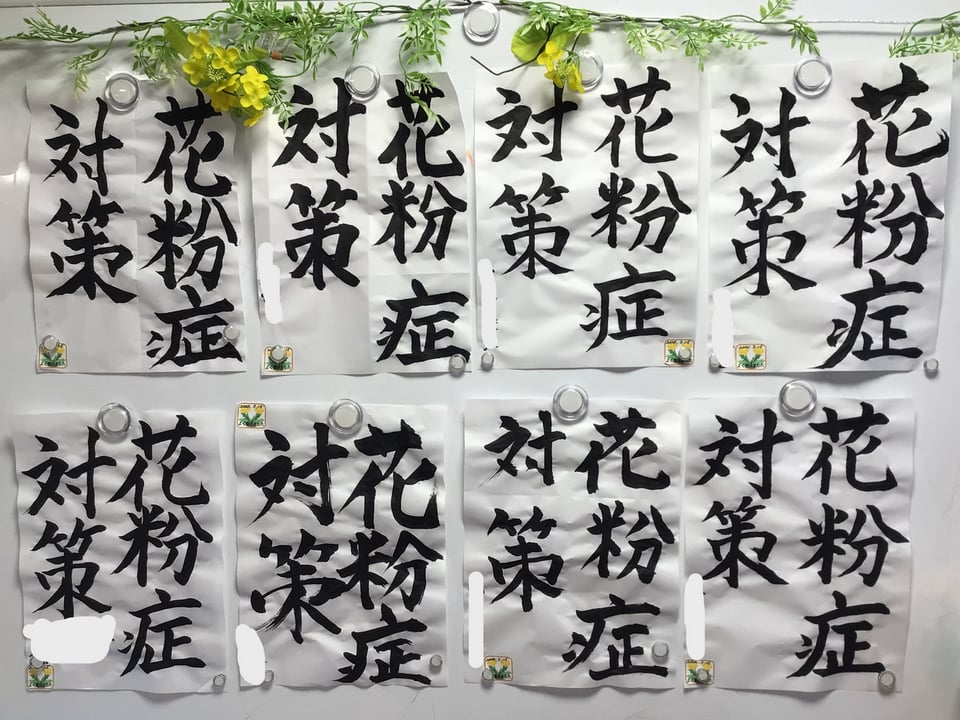 花粉症
対策
花粉症
対策
花粉症
対策
花粉症
対策
花粉症
対策
花粉症
対策
花粉症
対策
花粉症
対策